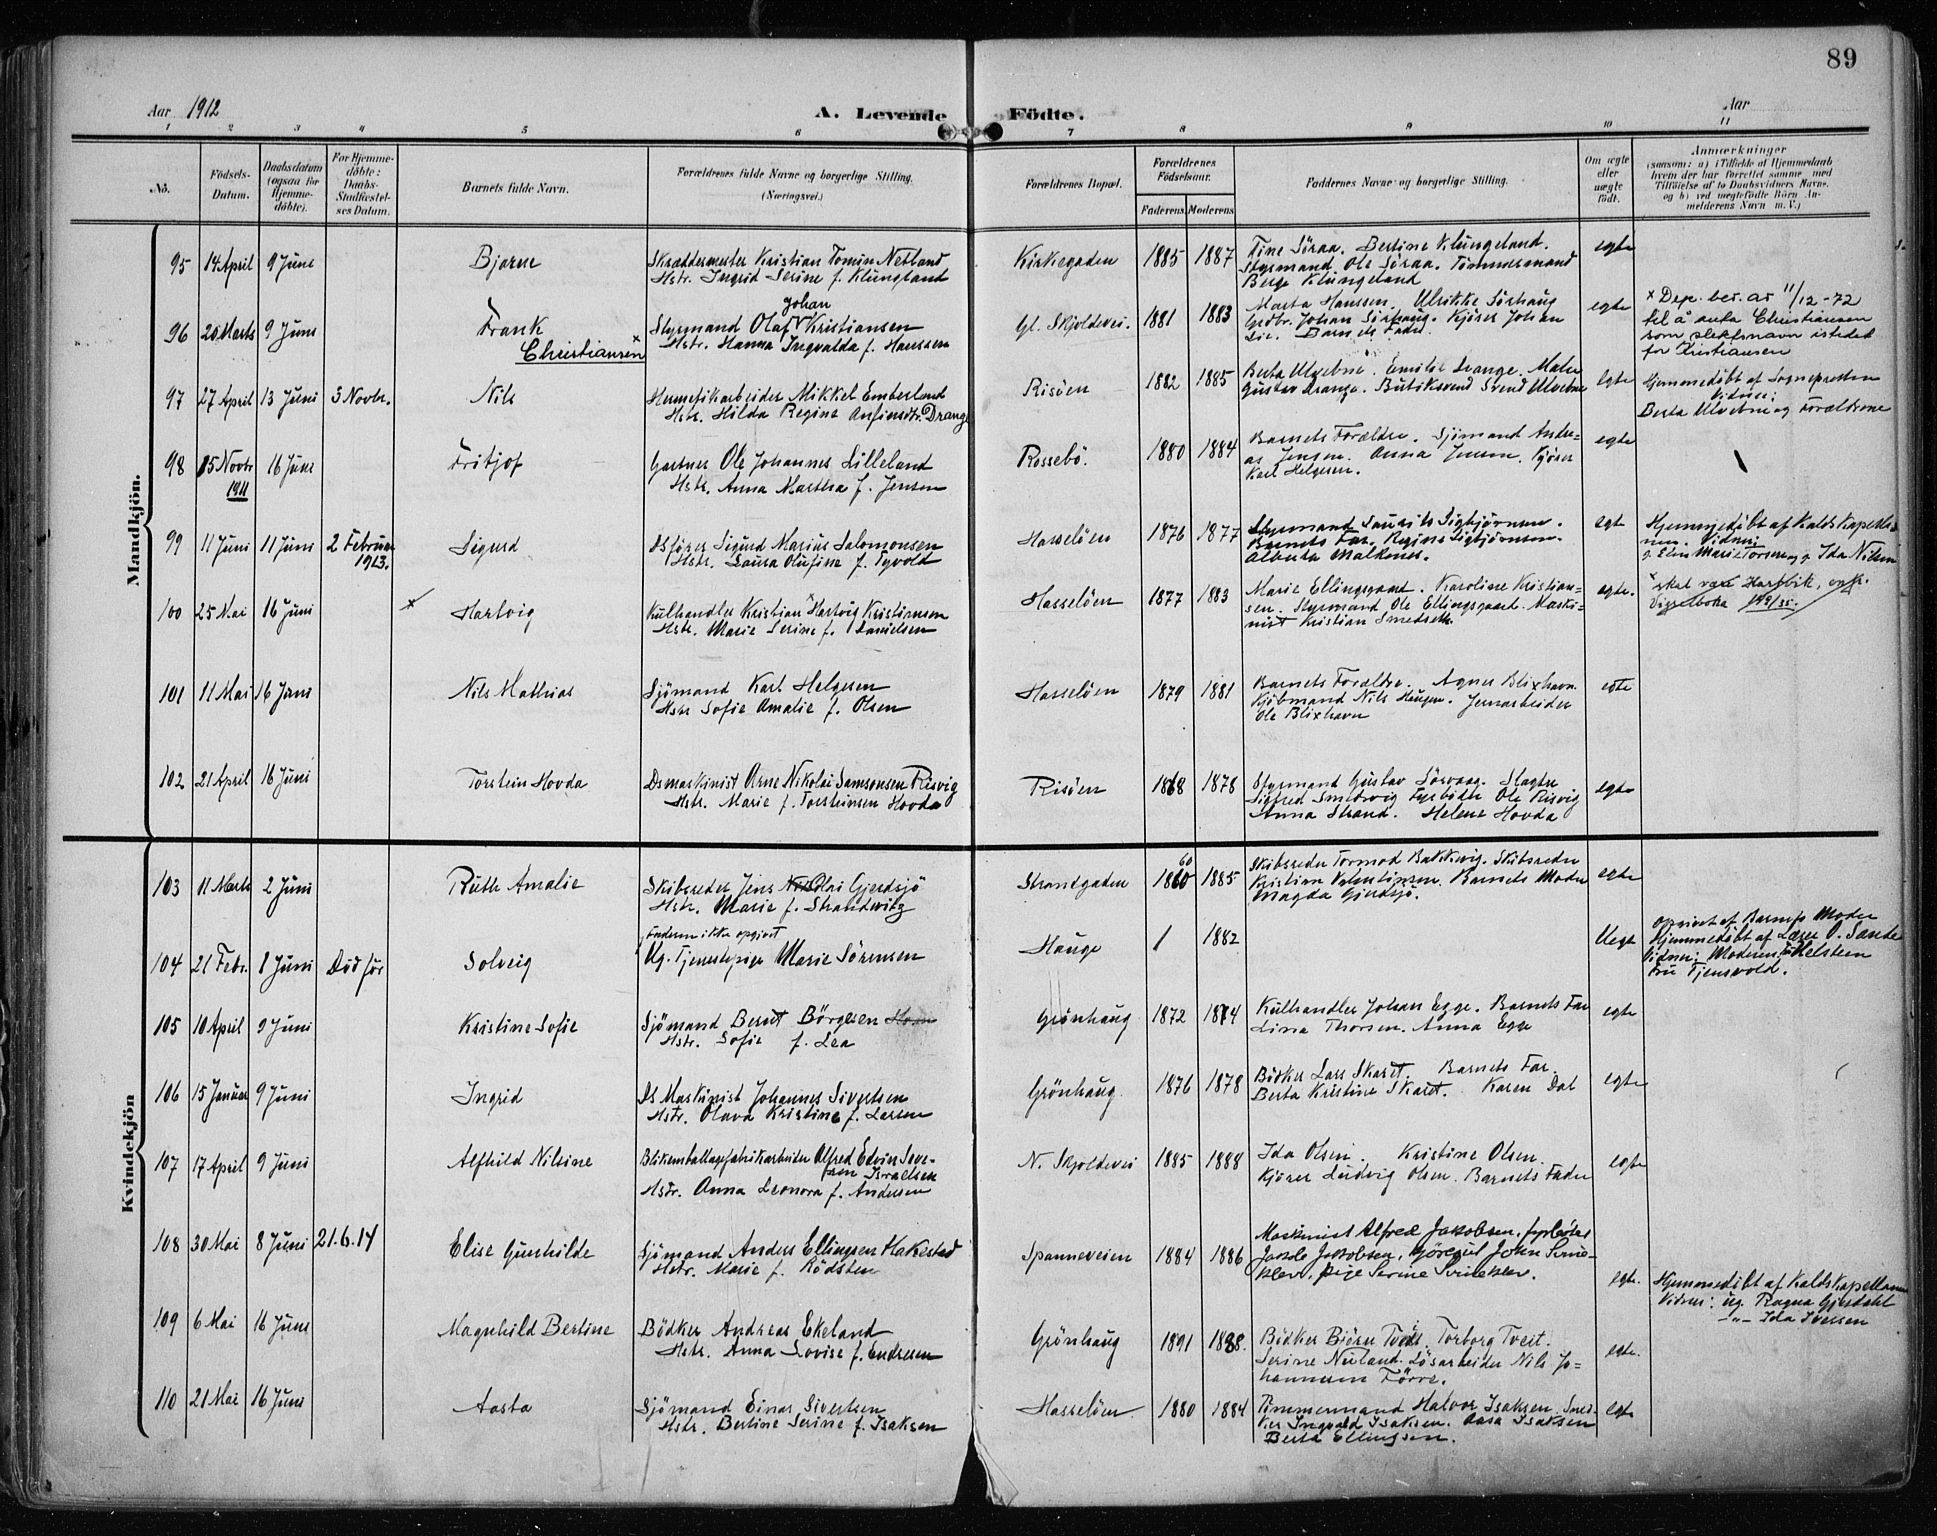 89
Aar 1912
A. Levende Födte.
Aar
1 2 3 4 5 6 7 8 9 10 11
No.
Födsels-Datum.
Daabsdatum (ogsaa for Hjemme-döbte).
For Hjemme-döbte: Daabs-Stadfæstel-ses Datum.
Barnets fulde Navn.
Forældrenes fulde Navne og borgerlige Stilling.
(Næringsvei.)
Forældrenes Bopæl.
Forældrenes Födselsaar.
Faderens. Moderens.
Faddernes Navne og borgerlige Stilling.
Om ægte eller uægte født.
Anmærkninger
(saasom: a) i Tilfælde af Hjemmedaab
hvem der har forrettet samme med
Tilföielse af to Daabsvidners Navne.
og b) ved uægtefødte Börn An-
melderens Navn m. V.)
Mandkjön.
95 14 April 9 Juni Bjarne
Skræddermester Kristian Tomin Netland
Hstr. Ingrid Serine f. Klungland
Kirkegaden 1885 1887
Tine Söraa. Bertine Klungeland.
Styrmand Ole Söraa. Tömmermand
Berge Klungeland
egte
96 20 Marts 9 Juni Frank
Christiansen x
Johan
Styrmand Olaf Kristiansen
Hstr. Hanna Ingvalda f. Hanssen
Gl. Skjoldevei. 1881 1883
Marta Hanssen. Ulrikke Sörhaug
Grdbr. Johan Sörhaug. Kjörer Johan
Lie. Barnets Fader
egte
x Dep. bev. av 11/12-72
til å anta Christiansen
som slektsnavn istedet
for Kristiansen
97 27 April 13 Juni 3 Novbr. Nils
Hermetikarbeider Mikkel Emberland
Hstr. Hilda Regine Anfinsdtr. Drange
Risöen 1882 1885
Berta Ulvebne. Emilie Drange. Maler
Gustav Drange. Butiksvend Svend Ulvebne
egte
Hjemmedöbt af Sognepresten
Vidner:
Berta Ulvebne og Forældrene
98 15 Novbr 1911 16 Juni Fritjof
Gartner Ole Johannes Lilleland
Hstr. Anna Martha f. Jensen
Rossebö. 1880 1884
Barnets Forældre. Sjömand Andre-
as Jensen. Anna Jensen. Kjörer
Karl Helgesen.
egte
99 11 Juni 11 Juni 2 Februar 1913. Sigurd
Dsförer Sigurd Marius Salomonsen
Hstr. Laura Olufine f. Tyvold
Hasselöen 1876 1877
Styrmand Laurits Sigbjörnsen.
Barnets Far. Regine Sigbjörnsen.
Alberta Malkenes.
egt
Hjemmedöbt af Kalds Kapella-
nen. Vidner:
g. Elen Marie Torsen og g. Ida Nilsen
100 25 Mai 16 Juni x Hartvig
Kulhandler Kristian Hartvig Kristiansen
Hstr. Marie Serine f. Danielsen
Hasselöen 1877 1883
Marie Ellingsgaard. Karoline Kristian-
sen. Styrmand Ole Ellingsgaard. Maski-
nist Kristian Smedsvik
egte.
x skal være Hartvik,
101 11 Mai 16 Juni Nils Mathias
Sjömand Karl Helgesen
Hstr Sofie Amalie f. Olsen
Hasselöen 1879 1881
Barnets Forældre. Agnes Blixhavn.
Kjöbmand Nils Haugen. Jernarbeider
Ole Blixhavn
egte
102 21 April 16 Juni Torstein Hovda
Dsmaskinist Arne Nikolai Samsonsen Risvig
Hstr. Marie f. Torsteinsen Hovda
Risöen 1868 1878
Styrmand Gustav Sörvaag. Slagter
Sigfred Smedsvig Fyrböder Ole Risvig
Anna Strand. Helene Hovda
egte
Kvindekjön
103 11 Marts 2 Juni Ruth Amalie
Skibsreder Jens Nikolai Gjerdsjö
Hstr. Marie f. Strandwitz
Strandgaden 60 1860 1885
Skibsreder Tormod Bakkevig. Skibsreder
Kristian Valentinsen. Barnets Moder
Magda Gjerdsjö.
egte
104 21 Febr. 8 Juni Död för Solveig
Faderen ikke opgivet
Ug. Tjenestepige Marie Sörensen
Hauge / 1882
Uegt
Opgivet af Barnets Moder
Hjemmedöbt af Lærer O. Sande
Vidner: Moderen Helsteen
Fru Tjensvold.
105 10 April 9 Juni Kristine Sofie
Sjömand Bernt Börgesen
Hstr. Sofie f. Lea
Grönhaug 1872 1874
Kulhandler Johan Egge. Barnets Far
Lina Thorsen. Anna Egge
egte
106 15 Januar 9 Juni Ingrid
Ds Maskinist Johannes Sivertsen
Hstr. Olava Kristine f. Larsen
Grönhaug. 1876 1878
Bödker Lars Skaret. Barnets Far.
Berta Kristine Skaret. Karen Dal
egte
107 17 April 9 Juni Alfhild Nilsine
Blikemballagefabrikarbeider Alfred Edvin Seve-
rin Israelsen
Hstr. Anna Leonora f. Andersen
N. Skjoldevei 1885 1888
Ida Olsen. Kristine Olsen.
Kjörer Ludvig Olsen. Barnets Fader
egte
108 30 Mai 8 Juni 21.6.14 Elise Gunhilde
Sjömand Anders Ellingsen Hakestad
Hstr. Marie f. Rödsten
Spanneveien 1884 1886
Maskinist Alfred Jakobsen, fyrböter
Jakob Jakobsen, kjöregut John Svine-
klev, pige Serine Svineklev.
egte.
Hjemmedöbt af Kalds Kapellanen
Vidner: ug. Ragna Gjerdahl
-"- Ida Iversen
109 6 Mai 16 Juni Magnhild Bertine
Bödker Andreas Ekeland
Hstr. Anna Lovise f. Endresen
Grönhaug 1891 1888.
Bödker Björn Tveit. Torborg Tveit.
Serine Nuland. Lösarbeider Nils Jo-
hannessen Förre.
egte.
110 21 Mai 16 Juni Aasta
Sjömand Einar Sivertsen
Hstr. Bertine Serine f. Isaksen
Hasselöen. 1880 1884
Tömmermand Halvor Isaksen. Sned-
ker Ingvald Isaksen. Aasa Isaksen
Berta Ellingsen.
egte